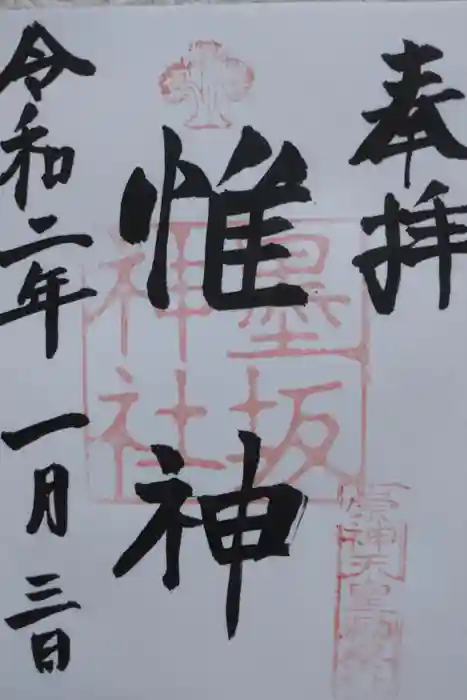 奉拝
惟神
令和二年一月三日
墨坂
神社